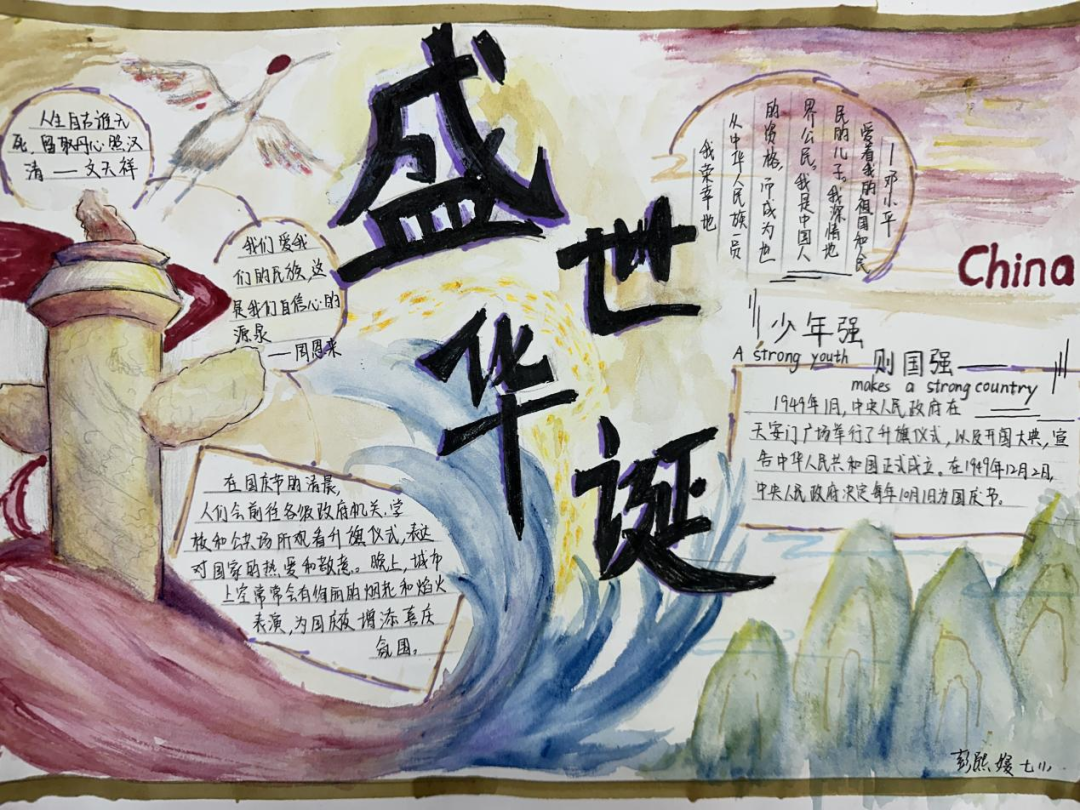 盛世华诞
人生自古谁无
死，留取丹心照汉
清 — 文天祥
我们爱我
们的民族，这
是我们自信心的
源泉
— 周恩来
我荣幸地
从中华人民族一员
的资格，而成为世
界公民。我是中国人
民的儿子。我深情地
爱着我的祖国和人民
— 邓小平
China
少年强
A strong youth
则国强
makes a strong country
1949年1月，中央人民政府在
天安门广场举行了升旗仪式，以及开国大典，宣
告中华人民共和国正式成立。在1949年12月2日，
中央人民政府决定每年10月1日为国庆节。
在国庆节的清晨，
人们会前往各级政府机关、学
校和公共场所观看升旗仪式，表达
对国家的热爱和敬意。晚上，城市
上空常常会有绚丽的烟花和焰火
表演，为国庆夜增添喜庆
氛围。
彭熙媛